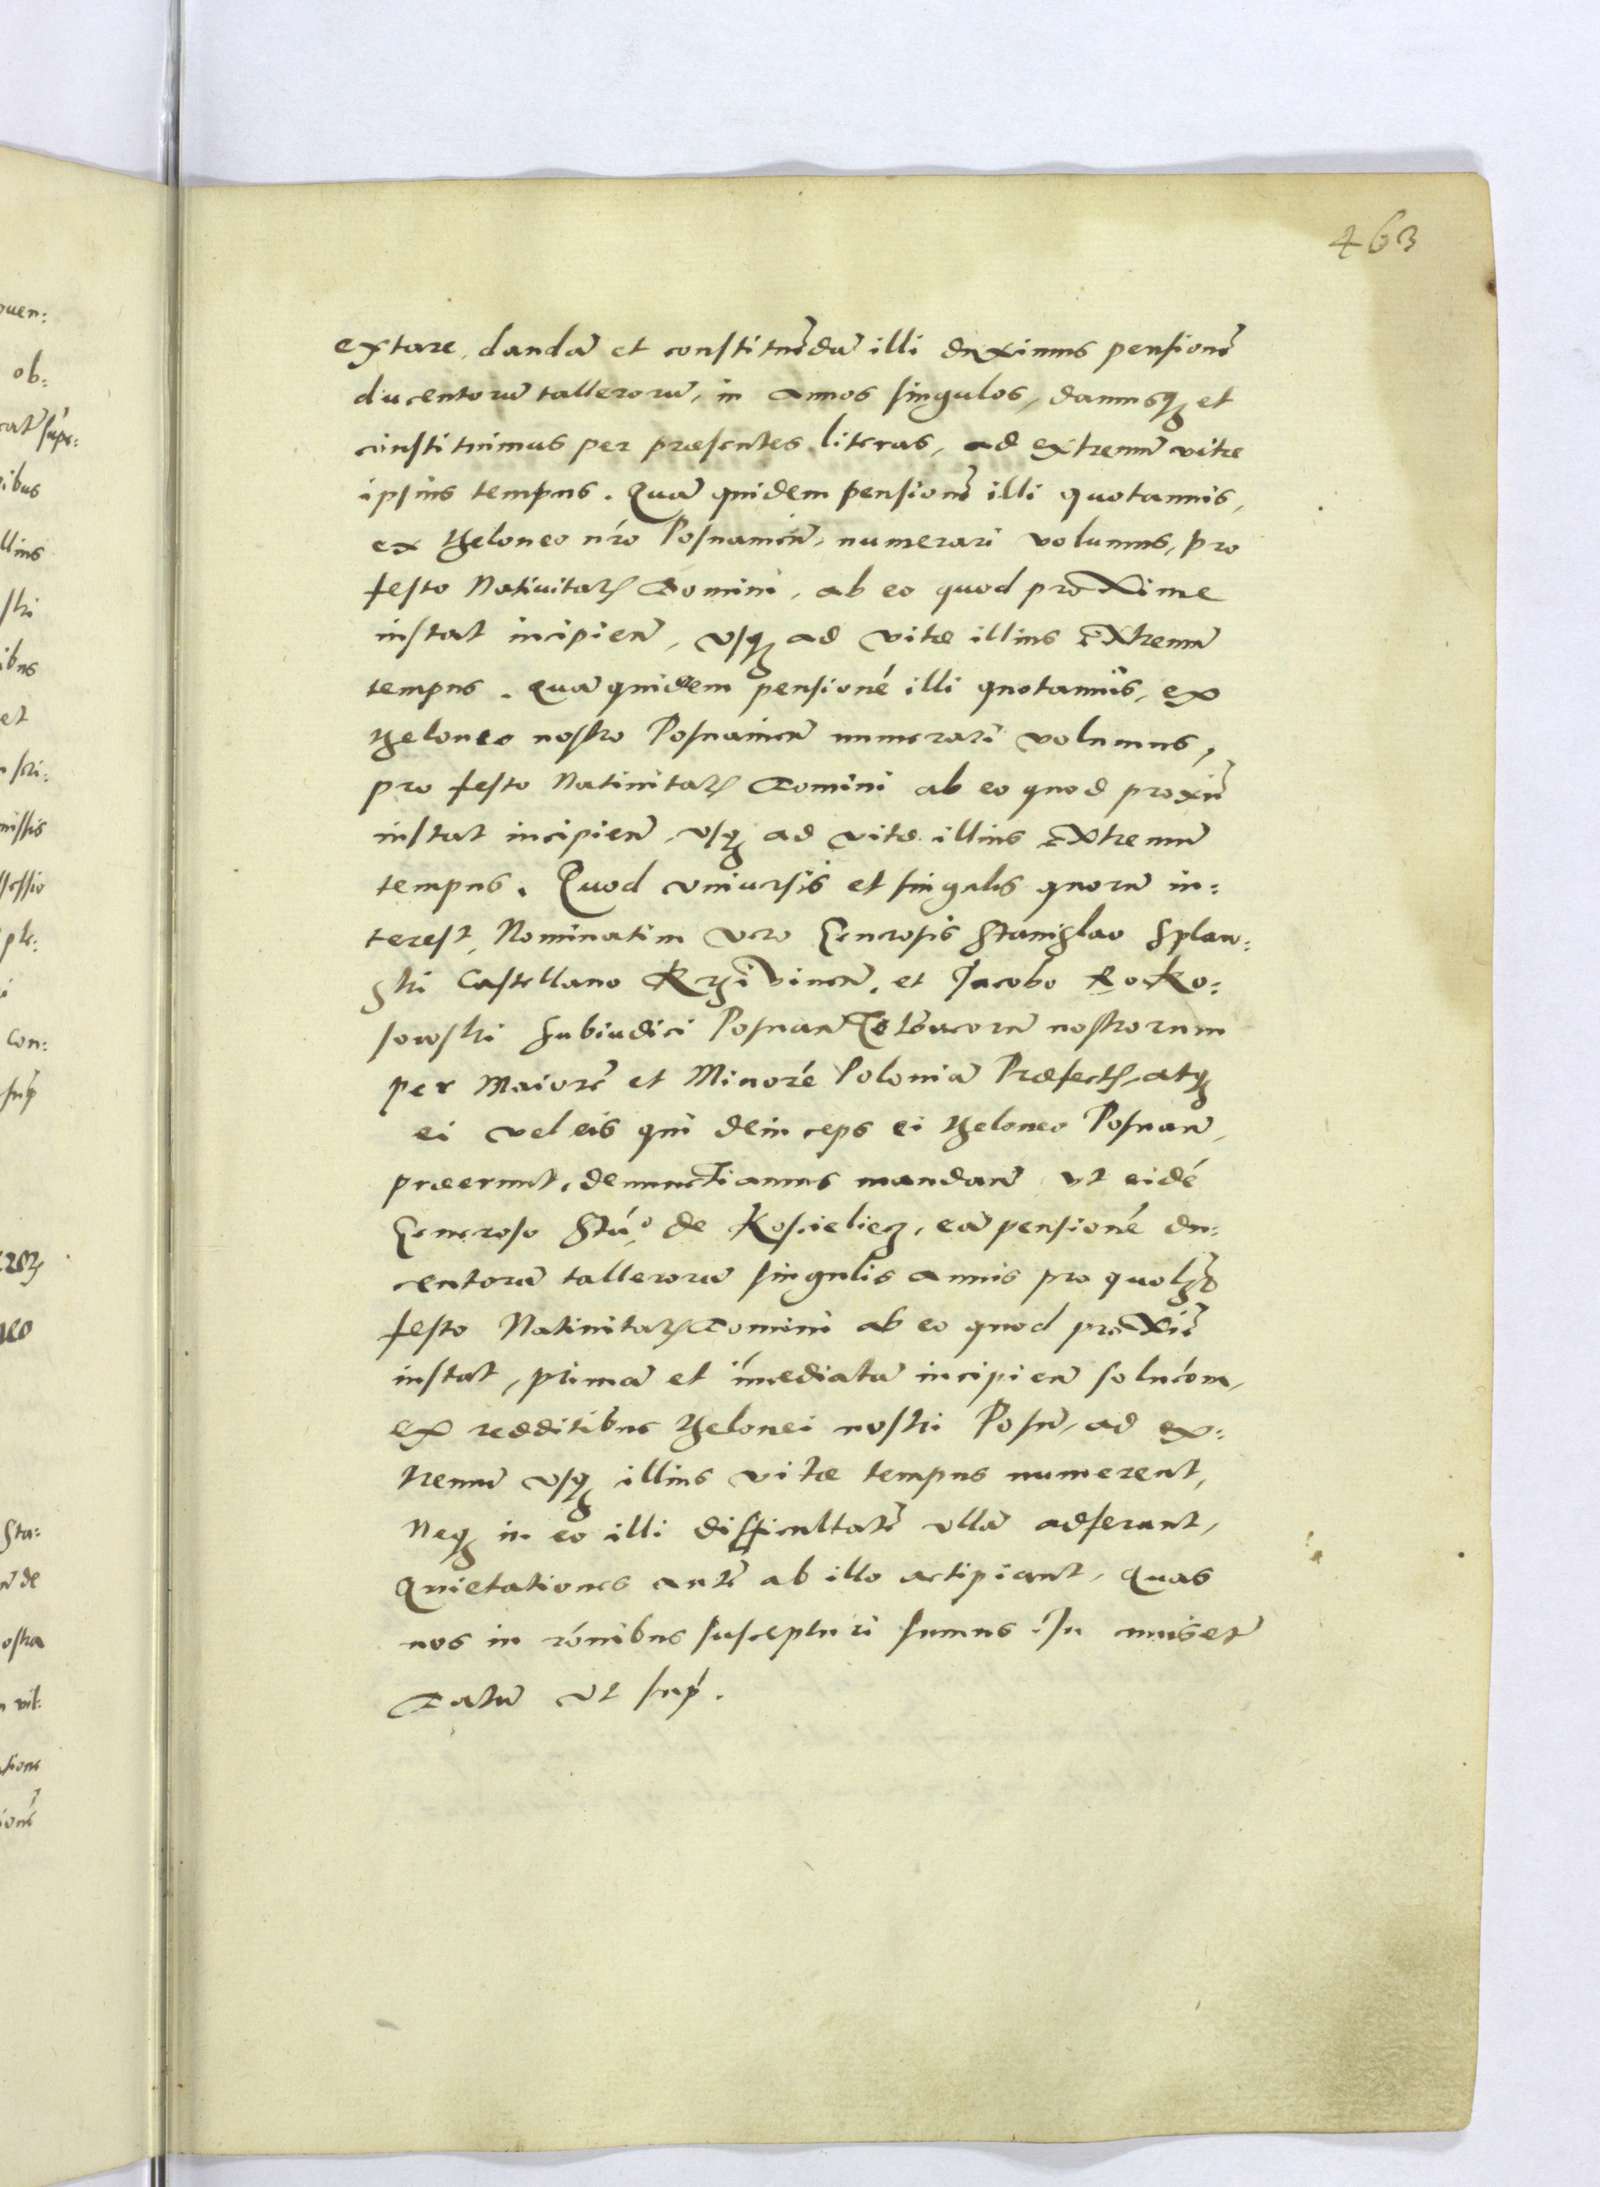 463
extare, dandā et constituēdā illi duximus pensionē
ducentorū tallerorū, in annos singulos, damusq et
constituimus per præsentes literas, ad extremū vitæ
ipsius tempus. Quā quidem pensionē illi quotannis,
ex theloneo nr̄o Posnanien̄, numerari volumus, pro
festo Natiuitatis Domini, ab eo quod proxime
instat incipien̄, vsq ad vitæ illius extremū
tempus. Quā quidem pensioné illi quotannis, ex
theloneo nostro Posnanien̄ numerari volumus,
pro festo Natiuitatis Domini ab eo quod proximē
instat incipien̄, vsq ad vitæ illius extremū
tempus. Quod vniuersis et singulis quorū in:
terest, Nominatim vero Generosis Stanislao Splaw:
ski Castellano Krzivinen̄, et Jacobo Roko:
sowski Subiudici Posnan̄ nostrorum
per Maiorē et Minoré Poloniā Præfectis, atq
ei vel eis qui deinceps ei theloneo Posnan̄,
præerunt, denunctiamus mandan̄ vt eidé
Generoso Stā° de Koscieliecz, eā pensioné du:
centorū tallerorū singulis annis pro quolḡ
festo Natiuitatis Domini ab eo quod proximē
instat, primā et im̄ediatā incipien̄ solucom,
ex redditibus thelonei nostri Posn̄, ad ex:
tremū vsq illius vitæ tempus numerent,
Neq in eo illi difficultatē vllā adferant,
Quietationes autē ab illo actipiant, Quas
nos in rōnibus suscepturi sumus. In cuius et
Datū vt sup̄.
ouen:
ob:
ibus
llius
ski
ibus
et
missis
ssessio
ple:
con:
sup̄
Sta:
de
ostra